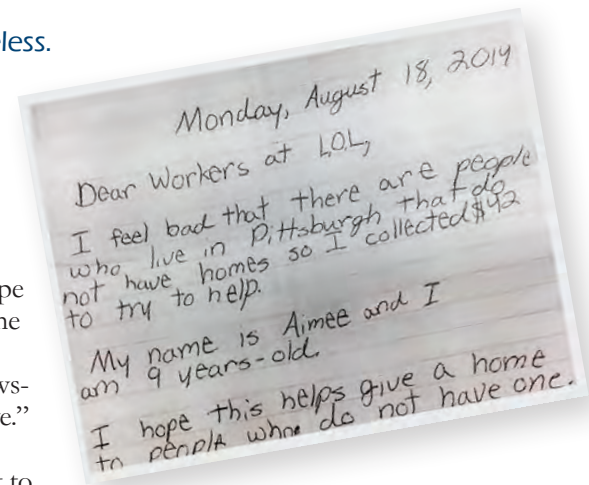 less.
Monday, August 18, 2014
Dear Workers at L.O.L,
I feel bad that there are people
who live in Pittsburgh that do
not have homes so I collected $42
to try to help.
My name is Aimee and I
am 9 years-old.
I hope this helps give a home
to people who do not have one.
pe
ne
ws-
e.”
t to